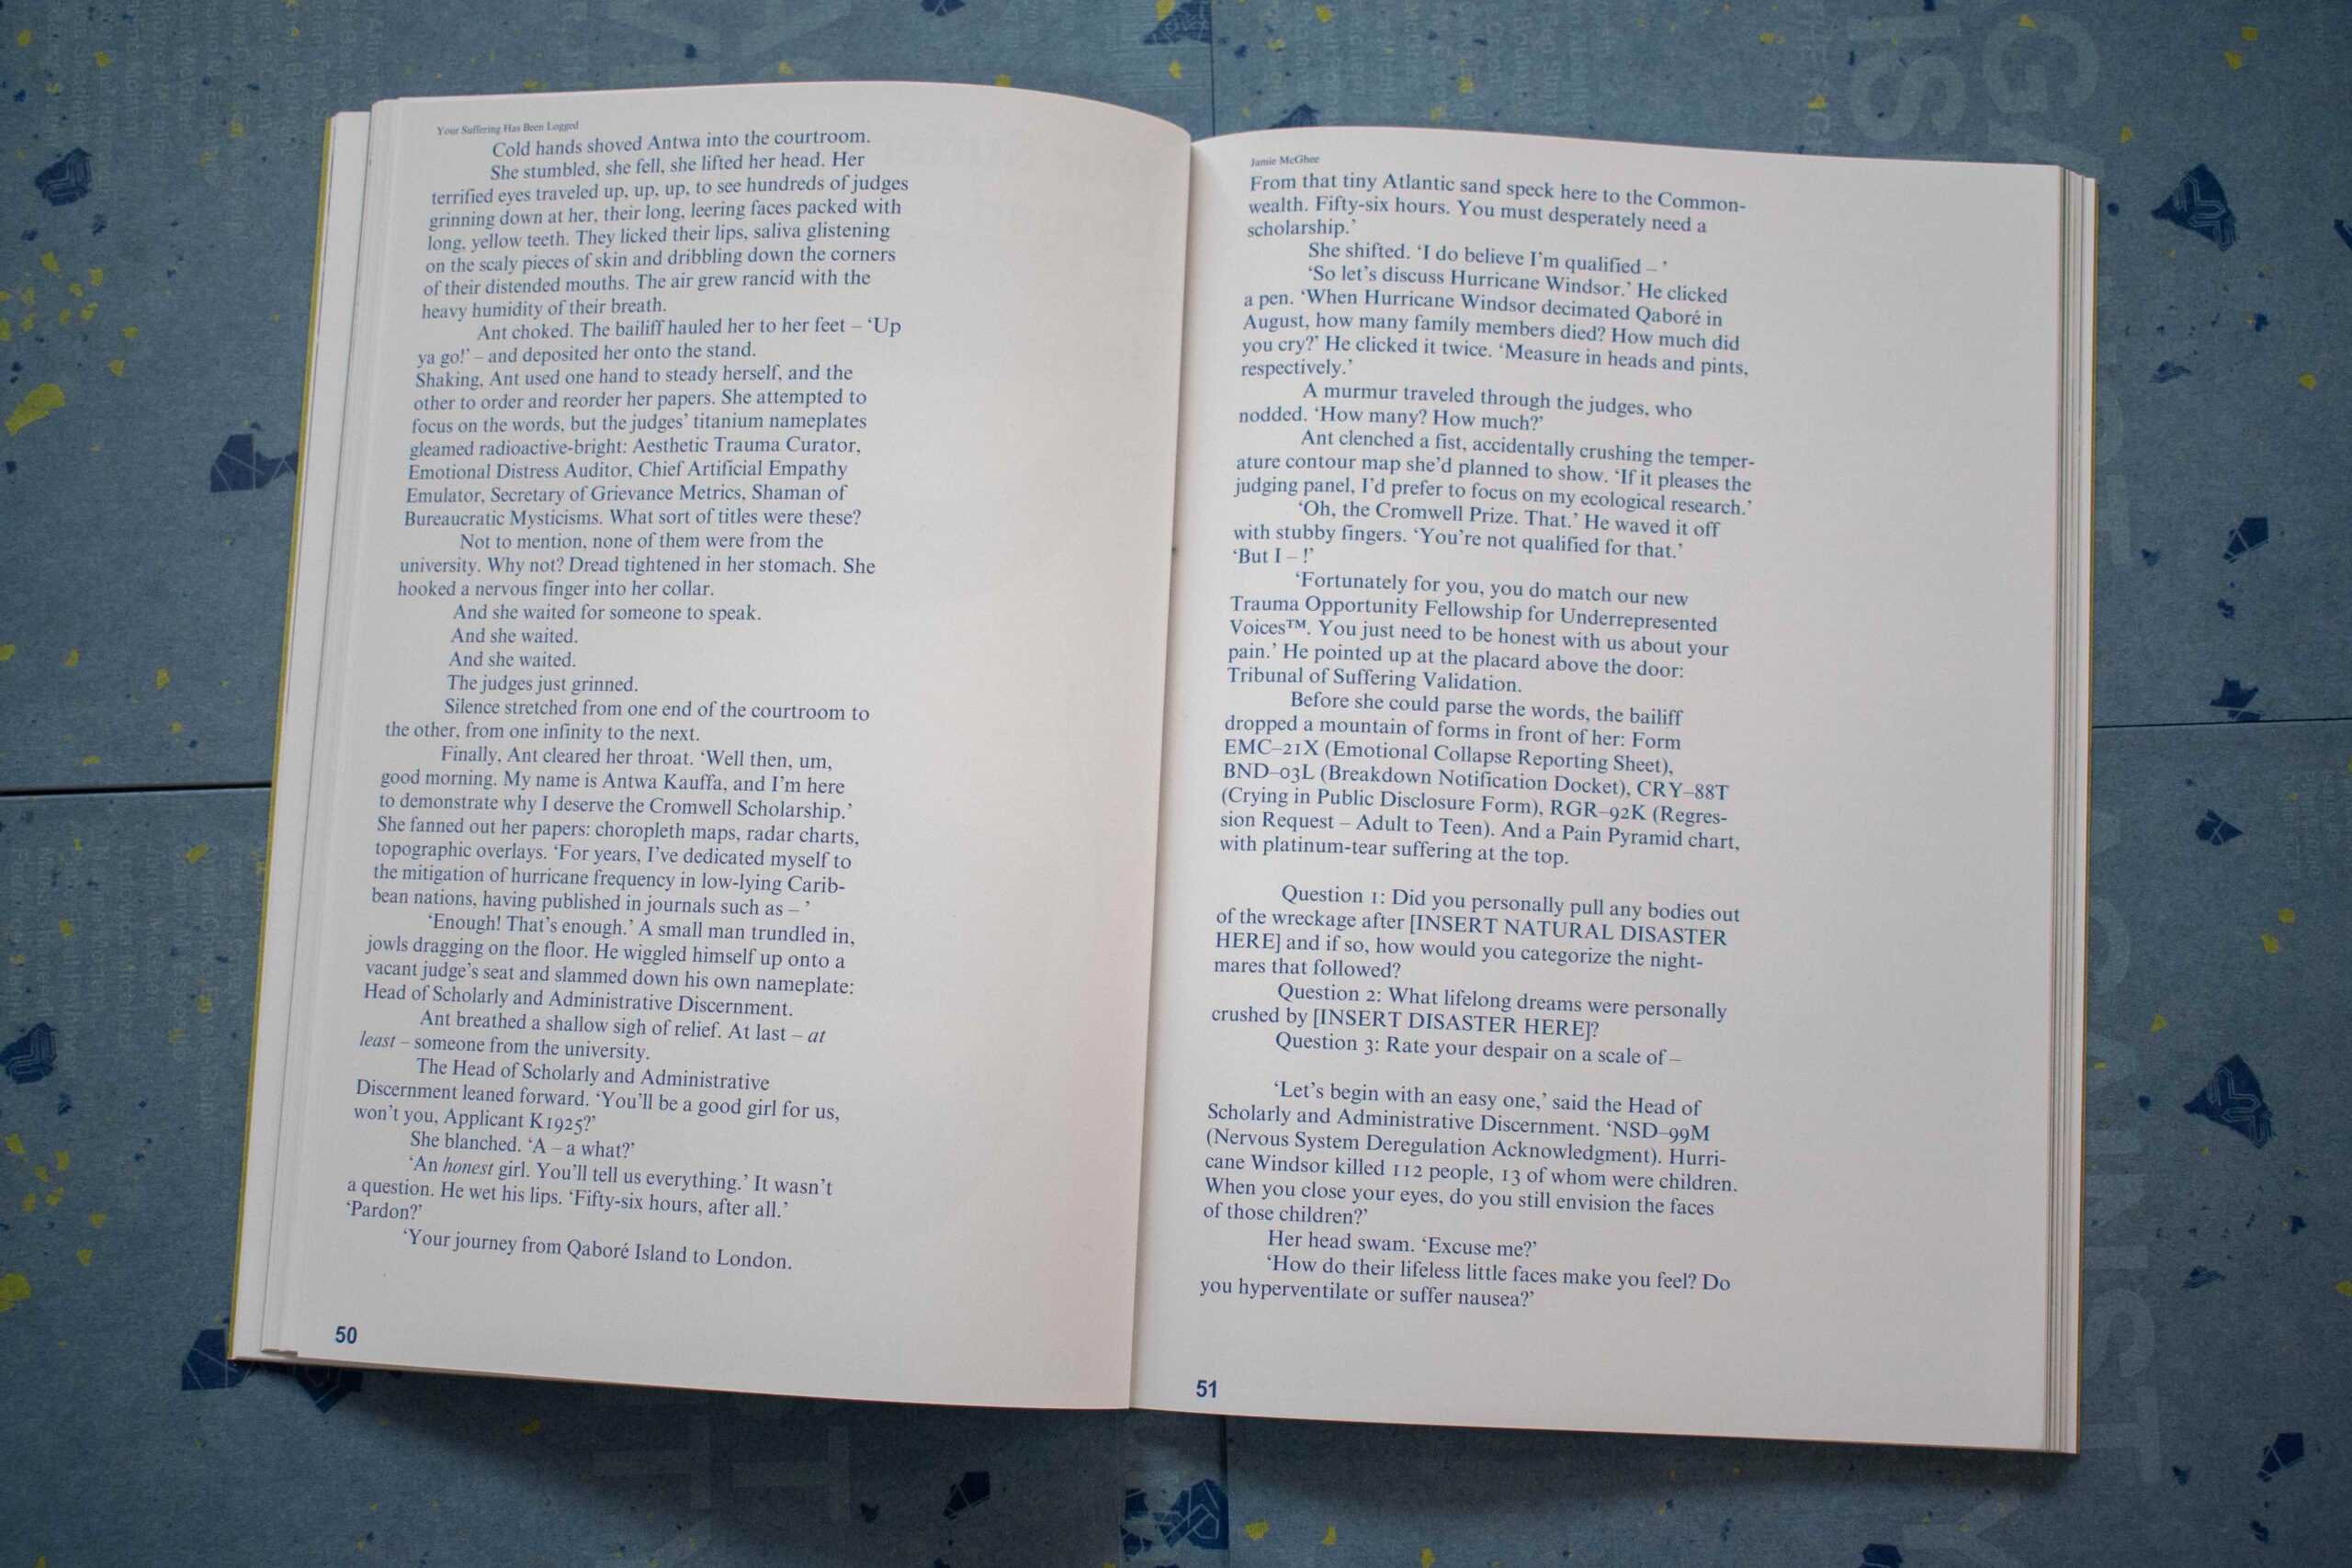 Your Suffering Has Been Logged
Cold hands shoved Antwa into the courtroom.
She stumbled, she fell, she lifted her head. Her
terrified eyes traveled up, up, up, to see hundreds of judges
grinning down at her, their long, leering faces packed with
long, yellow teeth. They licked their lips, saliva glistening
on the scaly pieces of skin and dribbling down the corners
of their distended mouths. The air grew rancid with the
heavy humidity of their breath.
Ant choked. The bailiff hauled her to her feet – ‘Up
ya go!’ – and deposited her onto the stand.
Shaking, Ant used one hand to steady herself, and the
other to order and reorder her papers. She attempted to
focus on the words, but the judges’ titanium nameplates
gleamed radioactive-bright: Aesthetic Trauma Curator,
Emotional Distress Auditor, Chief Artificial Empathy
Emulator, Secretary of Grievance Metrics, Shaman of
Bureaucratic Mysticisms. What sort of titles were these?
Not to mention, none of them were from the
university. Why not? Dread tightened in her stomach. She
hooked a nervous finger into her collar.
And she waited for someone to speak.
And she waited.
And she waited.
The judges just grinned.
Silence stretched from one end of the courtroom to
the other, from one infinity to the next.
Finally, Ant cleared her throat. ‘Well then, um,
good morning. My name is Antwa Kauffa, and I’m here
to demonstrate why I deserve the Cromwell Scholarship.’
She fanned out her papers: choropleth maps, radar charts,
topographic overlays. ‘For years, I’ve dedicated myself to
the mitigation of hurricane frequency in low-lying Carib-
bean nations, having published in journals such as – ’
‘Enough! That’s enough.’ A small man trundled in,
jowls dragging on the floor. He wiggled himself up onto a
vacant judge’s seat and slammed down his own nameplate:
Head of Scholarly and Administrative Discernment.
Ant breathed a shallow sigh of relief. At last – at
least – someone from the university.
The Head of Scholarly and Administrative
Discernment leaned forward. ‘You’ll be a good girl for us,
won’t you, Applicant K1925?’
She blanched. ‘A – a what?’
‘An honest girl. You’ll tell us everything.’ It wasn’t
a question. He wet his lips. ‘Fifty-six hours, after all.’
‘Pardon?’
‘Your journey from Qaboré Island to London.
50
Jamie McGhee
From that tiny Atlantic sand speck here to the Common-
wealth. Fifty-six hours. You must desperately need a
scholarship.’
She shifted. ‘I do believe I’m qualified – ’
‘So let’s discuss Hurricane Windsor.’ He clicked
a pen. ‘When Hurricane Windsor decimated Qaboré in
August, how many family members died? How much did
you cry?’ He clicked it twice. ‘Measure in heads and pints,
respectively.’
A murmur traveled through the judges, who
nodded. ‘How many? How much?’
Ant clenched a fist, accidentally crushing the temper-
ature contour map she’d planned to show. ‘If it pleases the
judging panel, I’d prefer to focus on my ecological research.’
‘Oh, the Cromwell Prize. That.’ He waved it off
with stubby fingers. ‘You’re not qualified for that.’
‘But I – !’
‘Fortunately for you, you do match our new
Trauma Opportunity Fellowship for Underrepresented
Voices™. You just need to be honest with us about your
pain.’ He pointed up at the placard above the door:
Tribunal of Suffering Validation.
Before she could parse the words, the bailiff
dropped a mountain of forms in front of her: Form
EMC–21X (Emotional Collapse Reporting Sheet),
BND–03L (Breakdown Notification Docket), CRY–88T
(Crying in Public Disclosure Form), RGR–92K (Regres-
sion Request – Adult to Teen). And a Pain Pyramid chart,
with platinum-tear suffering at the top.
Question 1: Did you personally pull any bodies out
of the wreckage after [INSERT NATURAL DISASTER
HERE] and if so, how would you categorize the night-
mares that followed?
Question 2: What lifelong dreams were personally
crushed by [INSERT DISASTER HERE]?
Question 3: Rate your despair on a scale of –
‘Let’s begin with an easy one,’ said the Head of
Scholarly and Administrative Discernment. ‘NSD–99M
(Nervous System Deregulation Acknowledgment). Hurri-
cane Windsor killed 112 people, 13 of whom were children.
When you close your eyes, do you still envision the faces
of those children?’
Her head swam. ‘Excuse me?’
‘How do their lifeless little faces make you feel? Do
you hyperventilate or suffer nausea?’
51